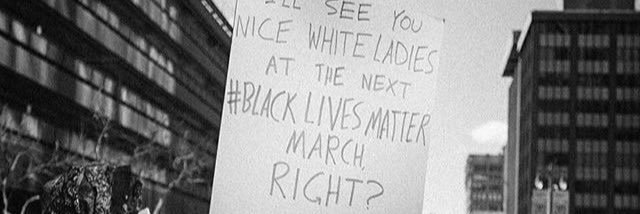 I'LL SEE YOU
NICE WHITE LADIES
AT THE NEXT
#BLACK LIVES MATTER
MARCH,
RIGHT?